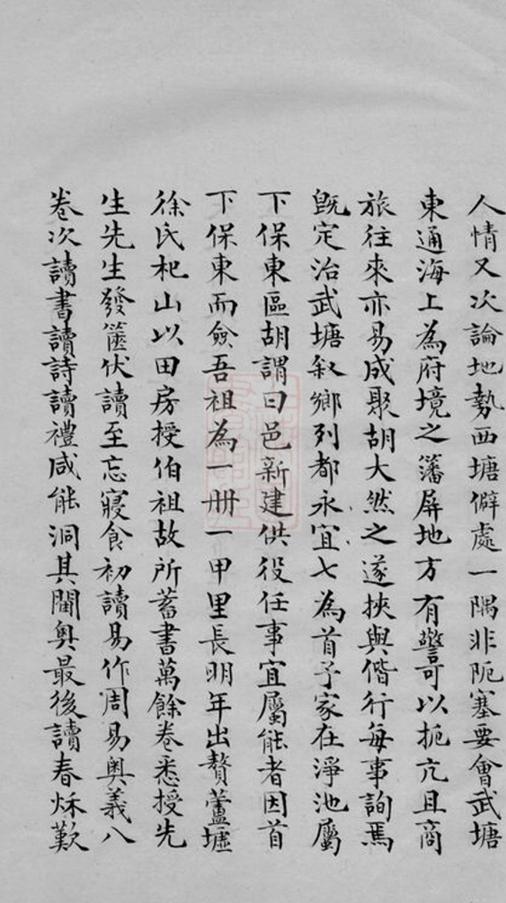 人情又次論地勢西塘僻處一隅非阨塞要會武塘
東通海上為府境之藩屏地方有警可以扼亢且商
旅往來亦易成聚胡大然之遂挾與偕行每事詢焉
既定治武塘叙鄉列都永宜七為首予家在淨池屬
下保東區胡謂曰邑新建供役任事宜屬能者因首
下保東而僉吾祖為一冊一甲里長明年出贅蘆墟
徐氏杞山以田房授伯祖故所蓄書萬餘卷悉授先
生先生發篋伏讀至忘寢食初讀易作周易奧義八
卷次讀書讀詩讀禮咸能洞其閫奧最後讀春秌歎